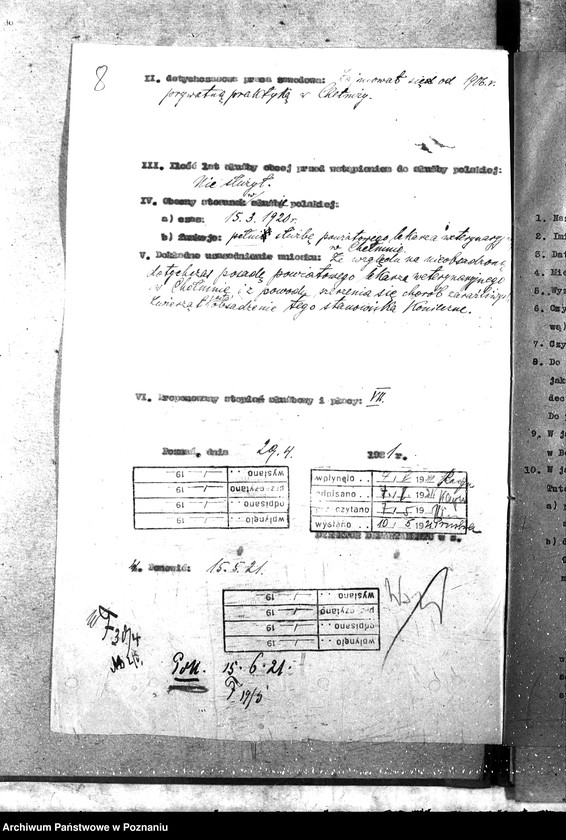 8
II. dotychczasowa praca zawodowa: Zajmował się od 1906.r.
prywatną praktyką w Chełmży.
III. Ilość lat służby obcej przed wstąpieniem do służby polskiej:
Nie służył.
IV. Obecny stosunek służby polskiej:
a) czas: 15.3.1920r.
b) funkcje: pełni służbę powiatowego lekarza weterynaryj
w Chełmnie.
V. Dokładne uzasadnienie wniosku: Ze względu na nieobsadzoną
dotychczas posadę powiatowego lekarza weterynaryjnego
w Chełmnie i z powodu szerzenia się chorób zaraźliwych
zwierząt obsadzenie tego stanowiska konieczne.
VI. Proponowany stopień służbowy i płacy: VII.
Poznań, dnia 29.4. 1921 r.
wysłano . . 19
przeczytano 19
odpisano . . 19
wpłynęło . . 19
wpłynęło . . 19
odpisano . . 7. 19
przeczytano 7. 5 19
wysłano . . 10. 5 1921
DYREKTOR DEPARTAMENTU
Ponowić: 15.5.21.
wysłano . . 19
przeczytano 19
odpisano . . 19
wpłynęło . . 19
30/4
15.6.21.
19/5
1. Na
2. Imi
3. Dat
4. Mie
5. Wyz
6. Czy
wą)
7. Czy
8. Do
jak
dec
Do
9. W j
w B
10. W j
Tut
a)
b)
Archiwum Państwowe w Poznaniu